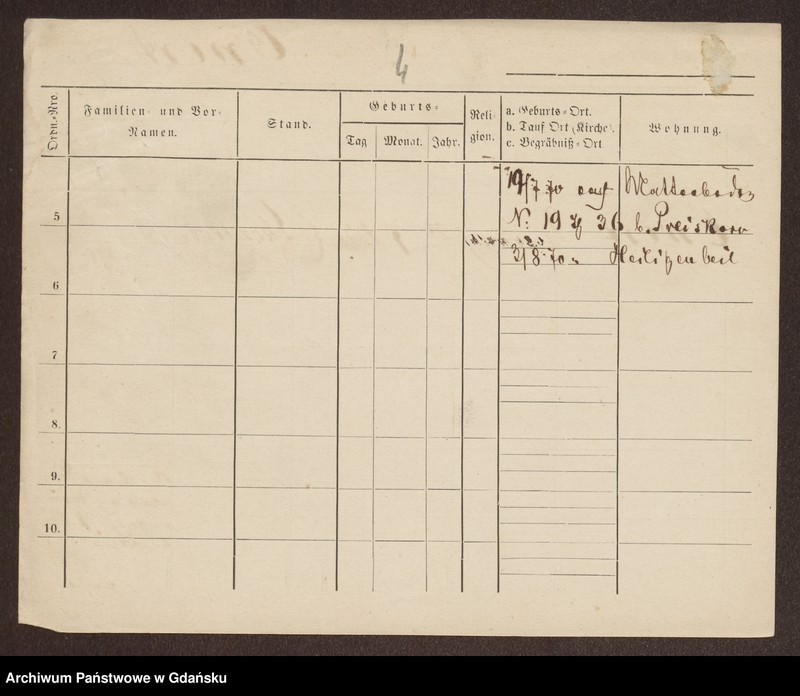 4
Ordn.-Nro.
Familien- und Vor-
Namen.
Stand.
Geburts-
Tag
Monat.
Jahr.
Reli-
gion.
a. Geburts-Ort.
b. Tauf Ort (Kirche).
c. Begräbniß-Ort
Wohnung.
19/7 70 auf
No. 19 36 b. Preiskorn
3/8.70. Heiligenbeil
5
6
7
8.
9.
10.
Archiwum Państwowe w Gdańsku